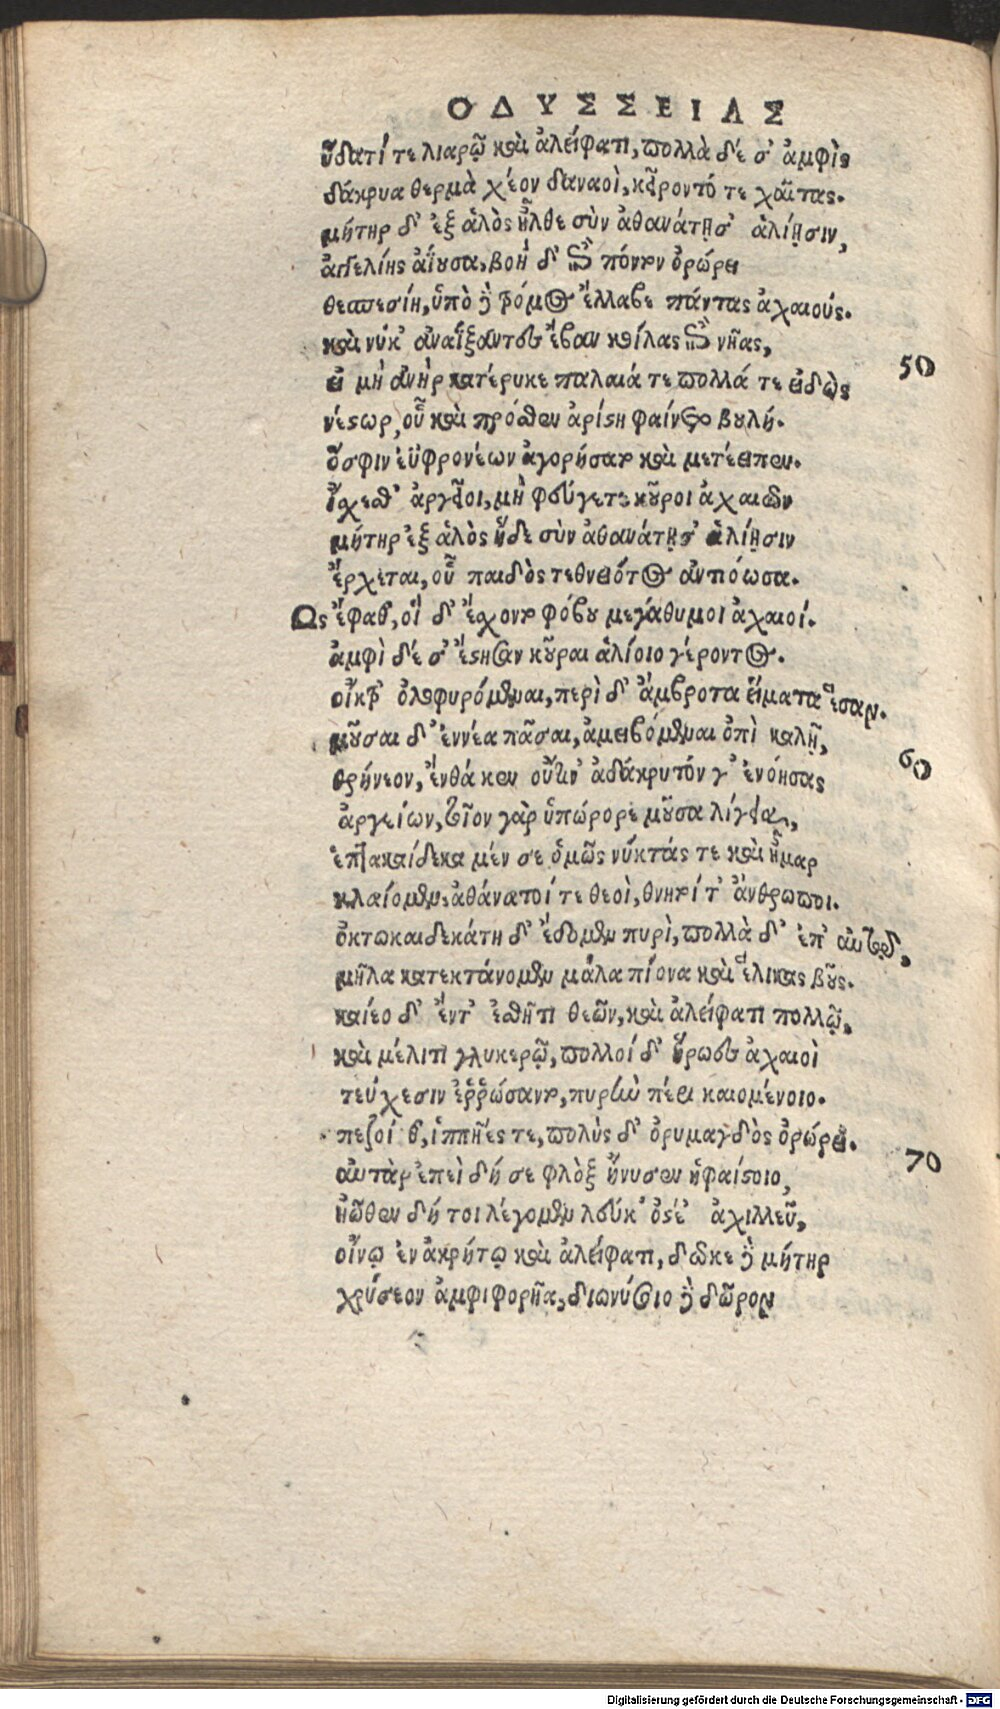 ΟΔΥΣΣΕΙΑΣ
ὕδατί τε λιαρῷ καὶ ἀλείφατι, πολλὰ δέ σ' ἀμφὶς
δάκρυα θερμὰ χέον δαναοὶ, κείροντό τε χαίτας.
μήτηρ δ' ἐξ ἁλὸς ἦλθε σὺν ἀθανάτῃσ' ἁλίῃσιν,
ἀγγελίης ἀΐουσα, βοὴ δ' ἐπὶ πόντον ὀρώρει
θεσπεσίη, ὑπὸ δὲ τρόμος ἔλλαβε πάντας ἀχαιούς.
καὶ νύκ' ἀναΐξαντες ἔβαν κοίλας ἐπὶ νῆας,
50
εἰ μὴ ἀνὴρ κατέρυκε παλαιά τε πολλά τε εἰδὼς
νέστωρ, οὗ καὶ πρόσθεν ἀρίστη φαίνετο βουλή.
ὅσφιν ἐϋφρονέων ἀγορήσατο καὶ μετέειπεν.
ἴσχεσθ' ἀργεῖοι, μὴ φεύγετε κοῦροι ἀχαιῶν
μήτηρ ἐξ ἁλὸς ἥδε σὺν ἀθανάτῃσ' ἁλίῃσιν
ἔρχεται, οὗ παιδὸς τεθνειότος ἀντιόωσα.
Ως ἔφαθ', οἵ δ' ἔσχοντο φόβου μεγάθυμοι ἀχαιοί.
ἀμφὶ δέ σ' ἔστησαν κοῦραι ἁλίοιο γέροντος.
οἶκτρ' ὀλοφυρόμεναι, περὶ δ' ἄμβροτα εἵματα ἕσαν.
μοῦσαι δ' ἐννέα πᾶσαι, ἀμειβόμεναι ὀπὶ καλῇ,
60
θρήνεον, ἔνθά κεν οὔτιν' ἀδάκρυτόν γ' ἐνόησας
ἀργείων, τοῖον γὰρ ὑπώρορε μοῦσα λίγεια,
ἑπτακαίδεκα μέν σε ὁμῶς νύκτάς τε καὶ ἦμαρ
κλαίομεν ἀθάνατοί τε θεοὶ, θνητοί τ' ἄνθρωποι.
ὀκτωκαιδεκάτη δ' ἔδομεν πυρὶ, πολλὰ δ' ἐπ' αὐτῷ,
μῆλα κατεκτάνομεν μάλα πίονα καὶ ἕλικας βοῦς.
καίεο δ' ἔντ' ἐσθῆτι θεῶν, καὶ ἀλείφατι πολλῷ,
καὶ μέλιτι γλυκερῷ, πολλοί δ' ἥρωες ἀχαιοὶ
τεύχεσιν ἐῤῥώσαντο, πυρὴν πέρι καιομένοιο.
πεζοί θ', ἱππῆές τε, πολὺς δ' ὀρυμαγδὸς ὀρώρει.
70
αὐτὰρ ἐπεὶ δή σε φλὸξ ἤνυσεν ἡφαίστοιο,
ἠῶθεν δή τοι λέγομεν λεύκ' ὀστέ' ἀχιλλεῦ,
οἴνῳ ἐν ἀκρήτῳ καὶ ἀλείφατι, δῶκε δὲ μήτηρ
χρύσεον ἀμφιφορῆα, διωνύσοιο δὲ δῶρον
Digitalisierung gefördert durch die Deutsche Forschungsgemeinschaft - DFG